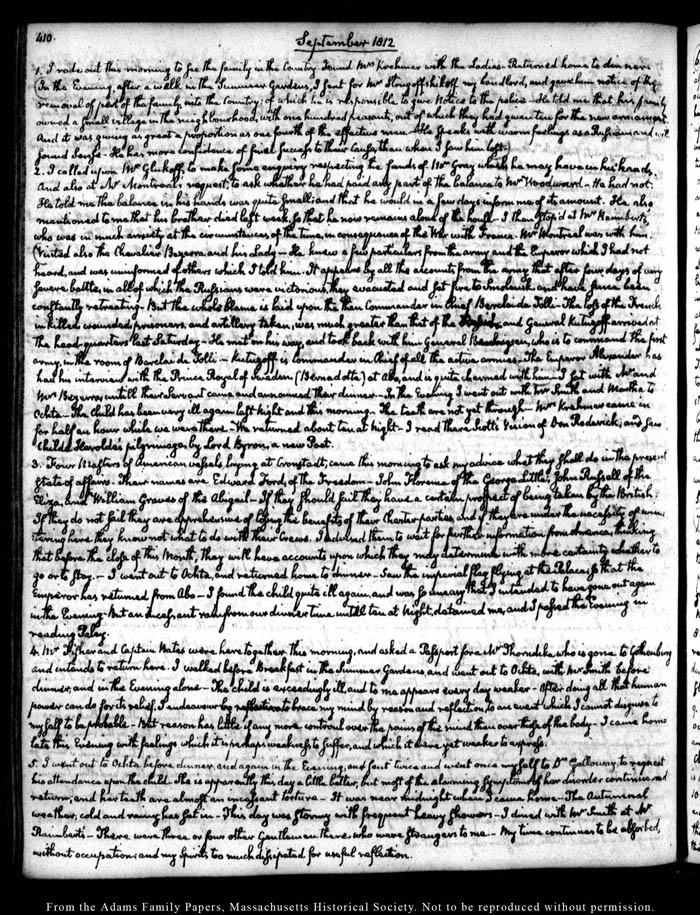 410.
September 1812
1. I rode out this morning to see the family in the Country. Found Mrs Krehmer with the Ladies. Returned home to dinner.
In the Evening, after a walk in the Summer Gardens, I sent for Mr Strogoffshikoff my landlord, and gave him notice of the
removal of part of the family into the Country; of which he is responsible to give Notice to the police. He told me that his family
owned a small village in the neighbourhood, with one hundred peasants, out of which they had given ten for the new armament.
And it was giving as great a proportion as one fourth of the effective men. He speaks with warm feelings as a Russian, and with
sound sense. He has more confidence of final success to their cause, than when I saw him last.
2. I called upon Mr Glukoff, to make some enquiry respecting the funds of Mr Gray which he may have in his hands.
And also at Mr Montreal's request, to ask whether he had paid any part of the balance to Mr Woodward. He had not.
He told me the balance in his hands was quite small; and that he would in a few days inform me of its amount. He also
mentioned to me that his brother died last week, so that he now remains alone of the house. I then stop'd at Mr Raimbert's,
who was in much anxiety at the circumstances of the time, in consequence of the War with France. Mr Montreal was with him.
Visited also the Chevalier Bezerra and his Lady. He knew a few particulars from the army and the Emperor which I had not
heard, and was uninformed of others which I told him. It appears by all the accounts from the army that after four days of very
severe battles, in all of which the Russians were victorious, they evacuated and set fire to Smolensk and have since been
constantly retreating. But the whole blame is laid upon the then Commander in Chief Barclai de Tolli. The loss of the French
in killed, wounded, prisoners, and artillery taken, was much greater than that of the and General Kutuzoff arrived at
the head-quarters last Saturday. He met on his way, and took back with him General Bennigsen, who is to command the first
army, in the room of Barclai de Tolli. Kutuzoff is Commander in Chief of all the active armies. The Emperor Alexander has
had his interview with the Prince Royal of Sweden (Bernadotte) at Abo, and is quite charmed with him. I sat with Mr and
Mrs Bezerra, untill their servant came and announced their dinner. In the Evening I went out with Mr Smith and Martha to
Ochta. The child has been very ill again last Night and this morning. The teeth are not yet through. Mrs Krehmer came in
for half an hour while we were there. We returned about ten at Night. I read there Scott's Vision of Don Roderick, and saw
Childe Harolde's pilgrimage, by Lord Byron, a new Poet.
3. Four Masters of American vessels, laying at Cronstadt, came this morning to ask my advice what they shall do in the present
state of affairs. Their names are Edward Ford, of the Freedom - John Florence of the George Little, John Russell of the
Eliza, and William Graves of the Abigail. If they should sail they have a certain prospect of being taken by the British.
If they do not sail they are apprehensive of losing the benefits of their Charterparties, and if they are under the necessity of win-
tering here they know not what to do with their Crews. I advised them to wait for further information from America, thinking
that before the close of this Month, they will have accounts upon which they may determine with more certainty whether to
go or to stay. I went out to Ochta, and returned home to dinner. Saw the imperial flag flying at the Palace, so that the
Emperor has returned from Abo. I found the child quite ill again, and was so uneasy that I intended to have gone out again
in the Evening. But an incessant rain from our dinner time untill ten at Night, detained me, and I passed the Evening in
reading Paley.
4. Mr Fisher and Captain Bates were here together this morning, and asked a Passport for a Mr Thorndike who is gone to Gothenburg
and intends to return here. I walked before Breakfast in the Summer Gardens and went out to Ochta, with Mr Smith before
dinner, and in the Evening alone. The child is exceedingly ill, and to me appears every day weaker. After doing all that human
power can do for its relief, I endeavour by reflection to brace my mind by reason and reflection, to an event which I cannot disguise to
myself to be probable. But reason has little if any more controul over the pains of the mind than over those of the body. I came home
late this Evening with feelings which it is perhaps weakness to suffer, and which it were yet weaker to express.
5. I went out to Ochta before dinner and again in the Evening, and sent twice and went once myself to Dr Galloway, to request
his attendance upon the child. She is apparently this day a little better, but most of the alarming symptoms of her disorder continue and
return, and her teeth are almost an incessant torture. It was near midnight when I came home. The Autumnal
weather, cold and rainy has set in. This day was stormy with frequent heavy showers. I dined with Mr Smith at Mr
Raimbert's. There were three or four other Gentlemen there who were strangers to me. My time continues to be absorbed,
without occupation; and my spirits too much dissipated for useful reflection.
From the Adams Family Papers, Massachusetts Historical Society. Not to be reproduced without permission.